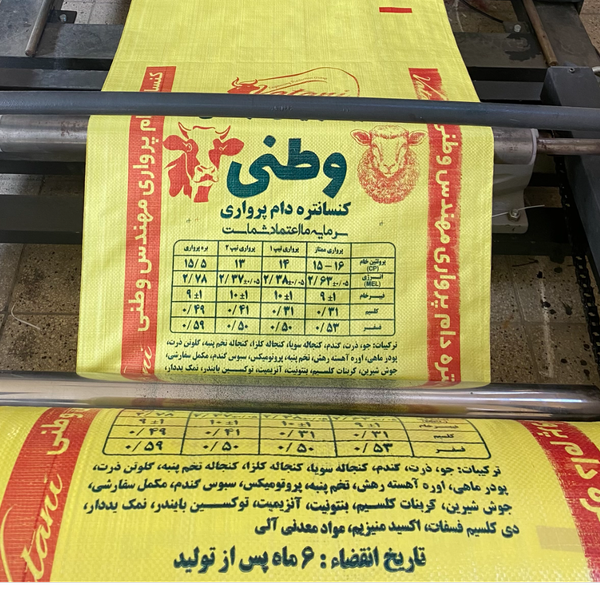 Vatani
وطنی
کنسانتره دام پرواری
سرمایه ما اعتماد شماست
پرواری ممتاز پرواری تیپ ۱ پرواری تیپ ۲ بره پرواری
پروتئین خام (CP) ۱۵-۱۶ ۱۴ ۱۳ ۱۵/۵
انرژی (MEL) ۲/۶۳±۰/۰۵ ۲/۳۸±۰/۰۵ ۲/۳۷±۰/۰۵ ۲/۷۸
فیبر خام ۹±۱ ۱۰±۱ ۱۰±۱ ۹±۱
کلسیم ۰/۳۱ ۰/۳۱ ۰/۴۱ ۰/۴۹
فسفر ۰/۵۳ ۰/۵۰ ۰/۵۰ ۰/۵۹
ترکیبات: جو، ذرت، گندم، کنجاله سویا، کنجاله کلزا، کنجاله تخم پنبه، گلوتن ذرت،
پودر ماهی، اوره آهسته رهش، تخم پنبه، پروتومیکس، سبوس گندم، مکمل سفارشی،
جوش شیرین، کربنات کلسیم، بنتونیت، آنزیمیت، توکسین بایندر، نمک یددار،
کنسانتره دام پرواری مهندس وطنی
تره دام پرواری مهندس وطنی
Vatani
فیبر خام ۹±۱ ۱۰±۱ ۱۰±۱ ۹±۱
کلسیم ۰/۳۱ ۰/۳۱ ۰/۴۱ ۰/۴۹
فسفر ۰/۵۳ ۰/۵۰ ۰/۵۰ ۰/۵۹
ترکیبات: جو، ذرت، گندم، کنجاله سویا، کنجاله کلزا، کنجاله تخم پنبه، گلوتن ذرت،
پودر ماهی، اوره آهسته رهش، تخم پنبه، پروتومیکس، سبوس گندم، مکمل سفارشی،
جوش شیرین، کربنات کلسیم، بنتونیت، آنزیمیت، توکسین بایندر، نمک یددار،
دی کلسیم فسفات، اکسید منیزیم، مواد معدنی آلی
تاریخ انقضاء : ۶ ماه پس از تولید
وطنی
tani